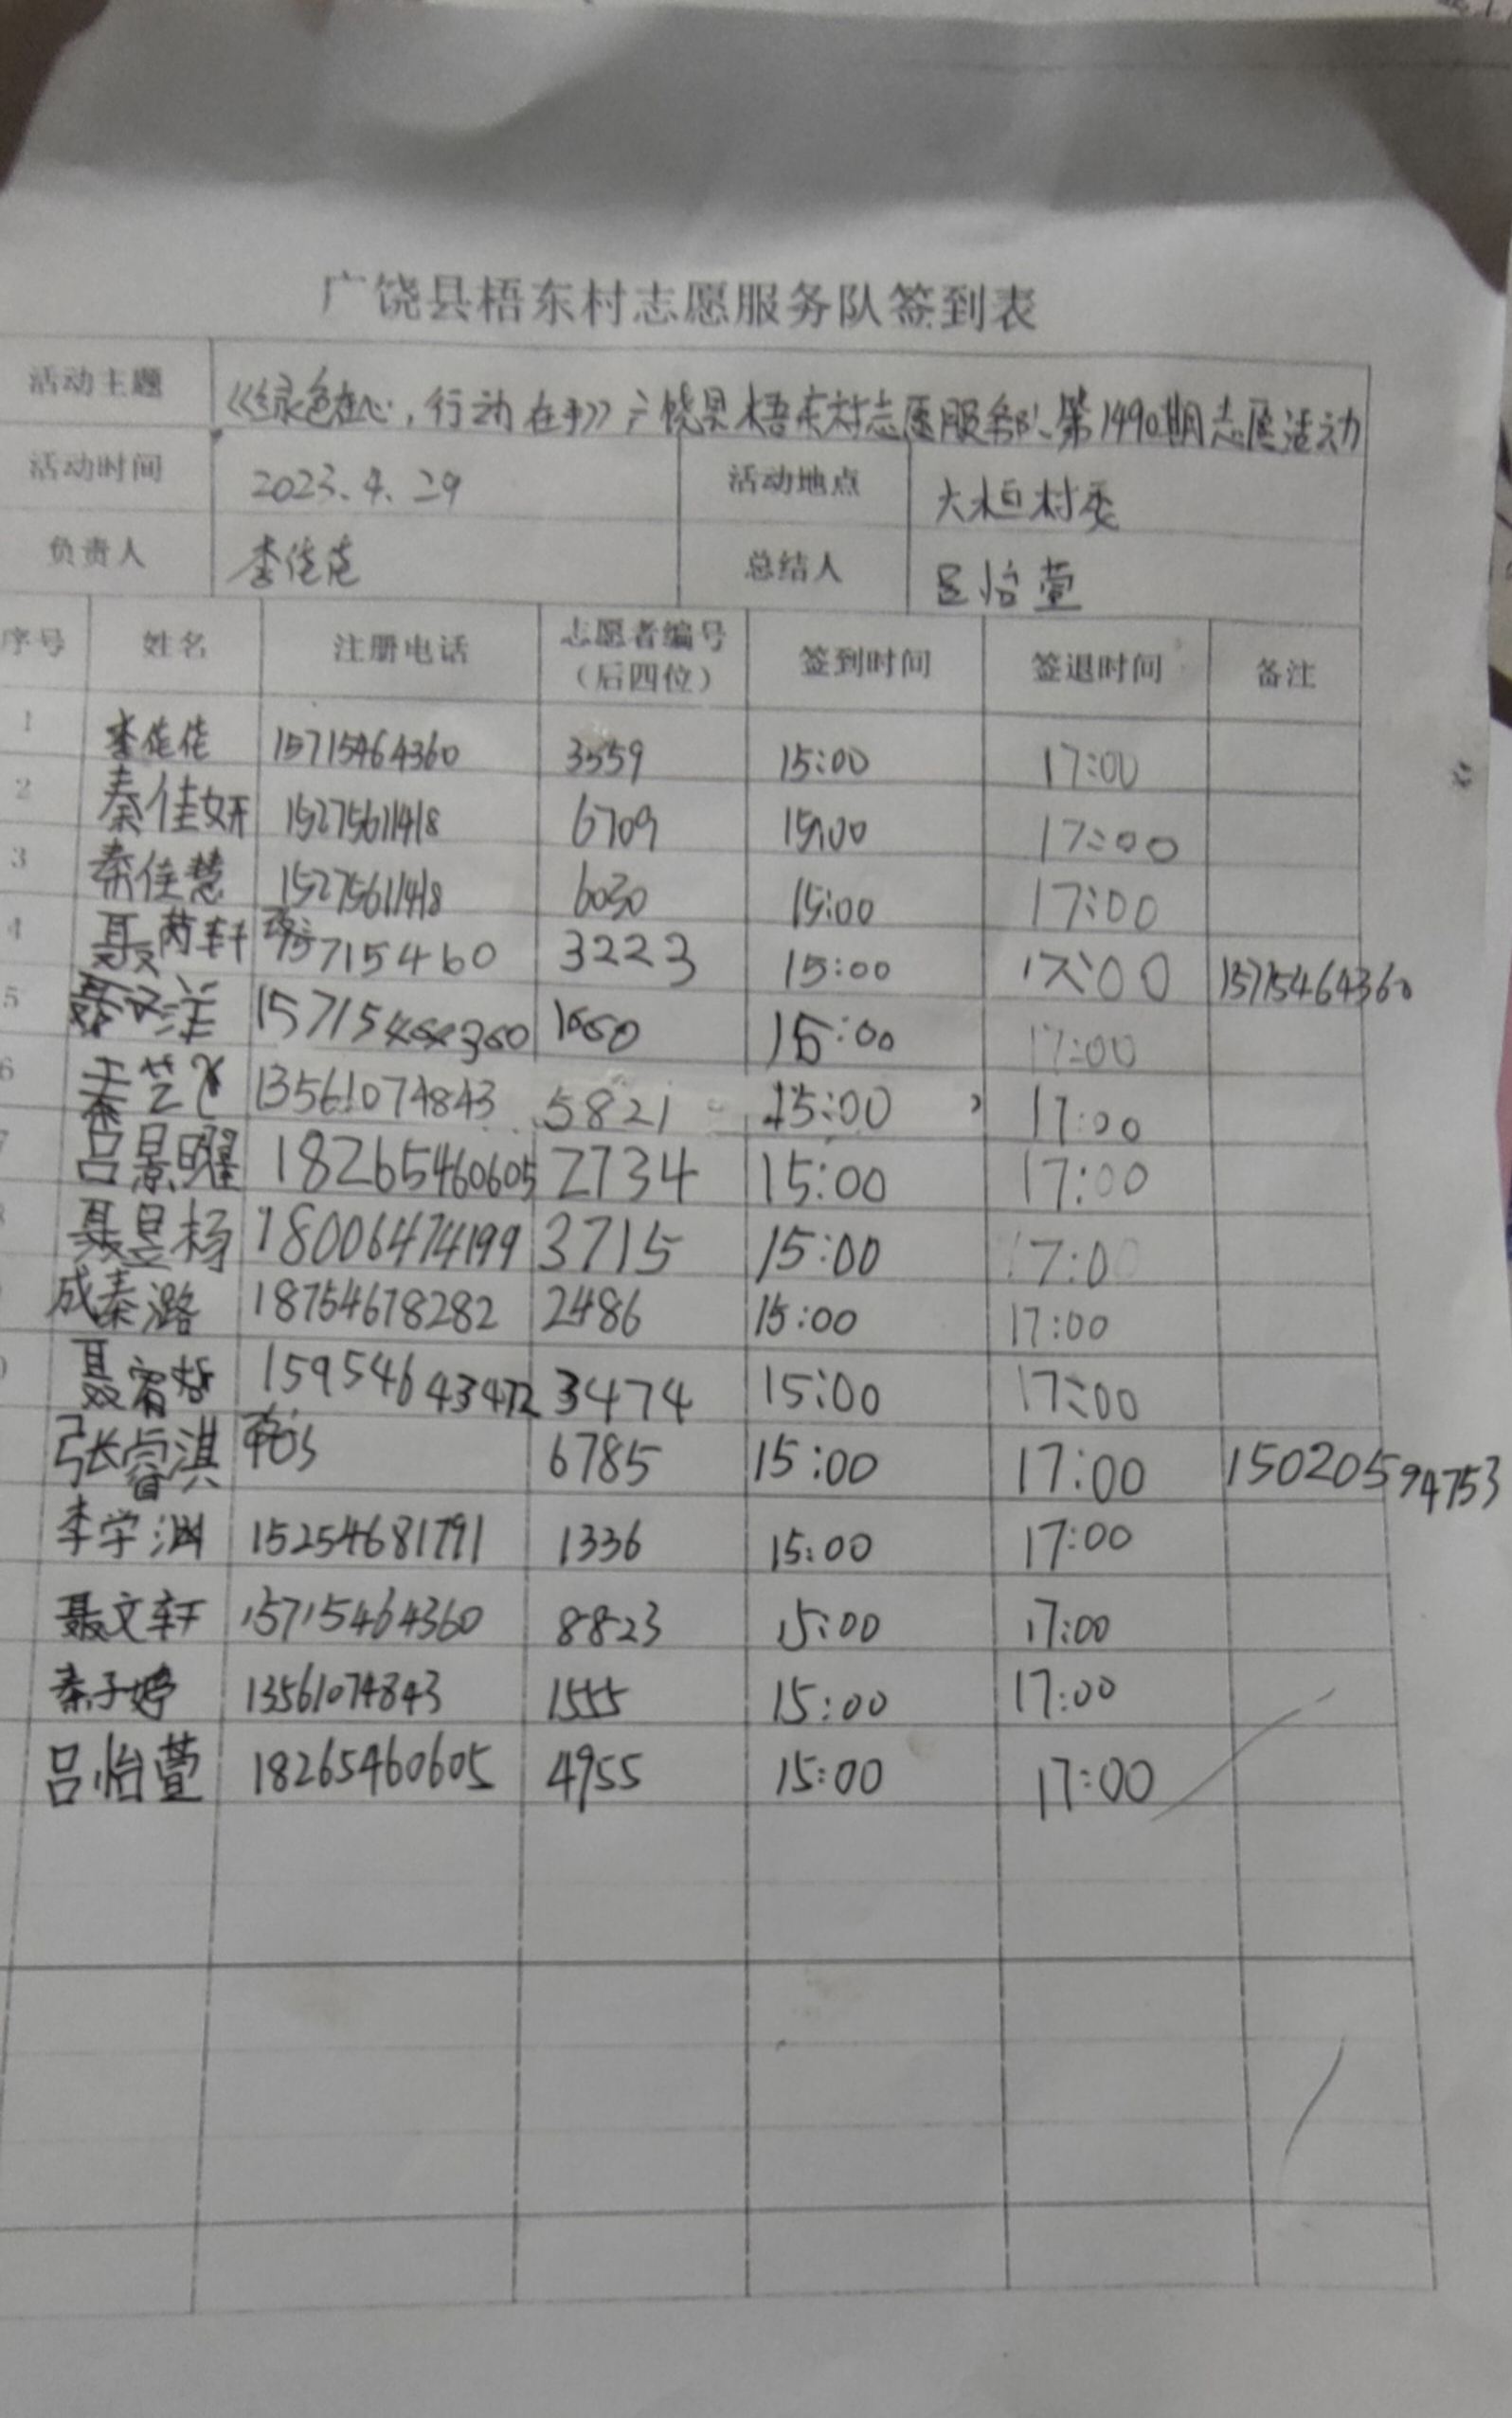 广饶县梧东村志愿服务队签到表
活动主题 《绿色在心,行动在手》广饶县梧东村志愿服务队第1490期志愿活动
活动时间 2023.4.29 活动地点 大桓村委
负责人 李佬佬 总结人 吕怡萱
序号 姓名 注册电话 志愿者编号（后四位） 签到时间 签退时间 备注
1 李佬佬 15715464360 3559 15:00 17:00
2 秦佳妍 15275611418 6709 15:00 17:00
3 秦佳慧 15275611418 6030 15:00 17:00
4 聂芮轩 15715460 3223 15:00 17:00 15715464360
5 15715464360 1660 15:00 17:00
6 秦艺 13561074843 5821 15:00 17:00
7 吕景曜 18265460605 2734 15:00 17:00
聂昱杨 18006474199 3715 15:00 17:00
成秦潞 18754678282 2486 15:00 17:00
聂 3474 15:00 17:00
张睿淇 6785 15:00 17:00 15020594753
李学渊 15254681791 1336 15:00 17:00
聂文轩 15715464360 8823 15:00 17:00
秦子婷 13561074843 1555 15:00 17:00
吕怡萱 18265460605 4955 15:00 17:00